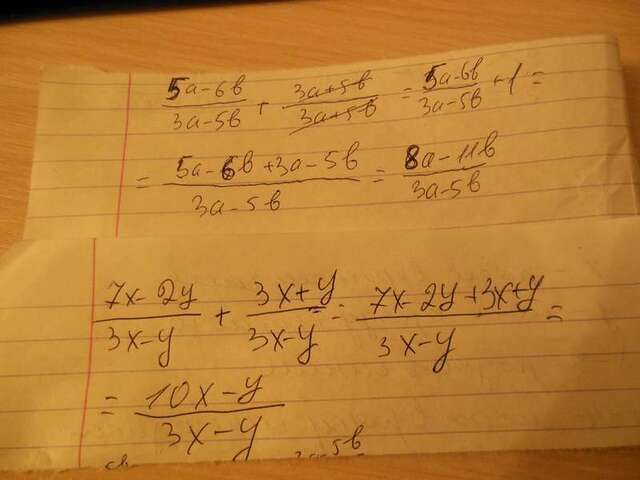 5a-6b/3a-5b + 3a+5b/3a+5b = 5a-6b/3a-5b + 1 =
= 5a-6b+3a-5b/3a-5b = 8a-11b/3a-5b
7x-2y/3x-y + 3x+y/3x-y = 7x-2y+3x+y/3x-y =
= 10x-y/3x-y